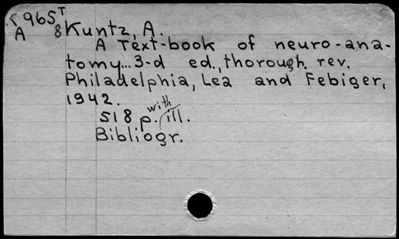 965 T
A 8 Kuntz, A.
A Text-book of neuro-ana-
tomy... 3-d ed., thorough. rev.
Philadelphia, Lea and Febiger,
1942.
518 p. with ill.
Bibliogr.